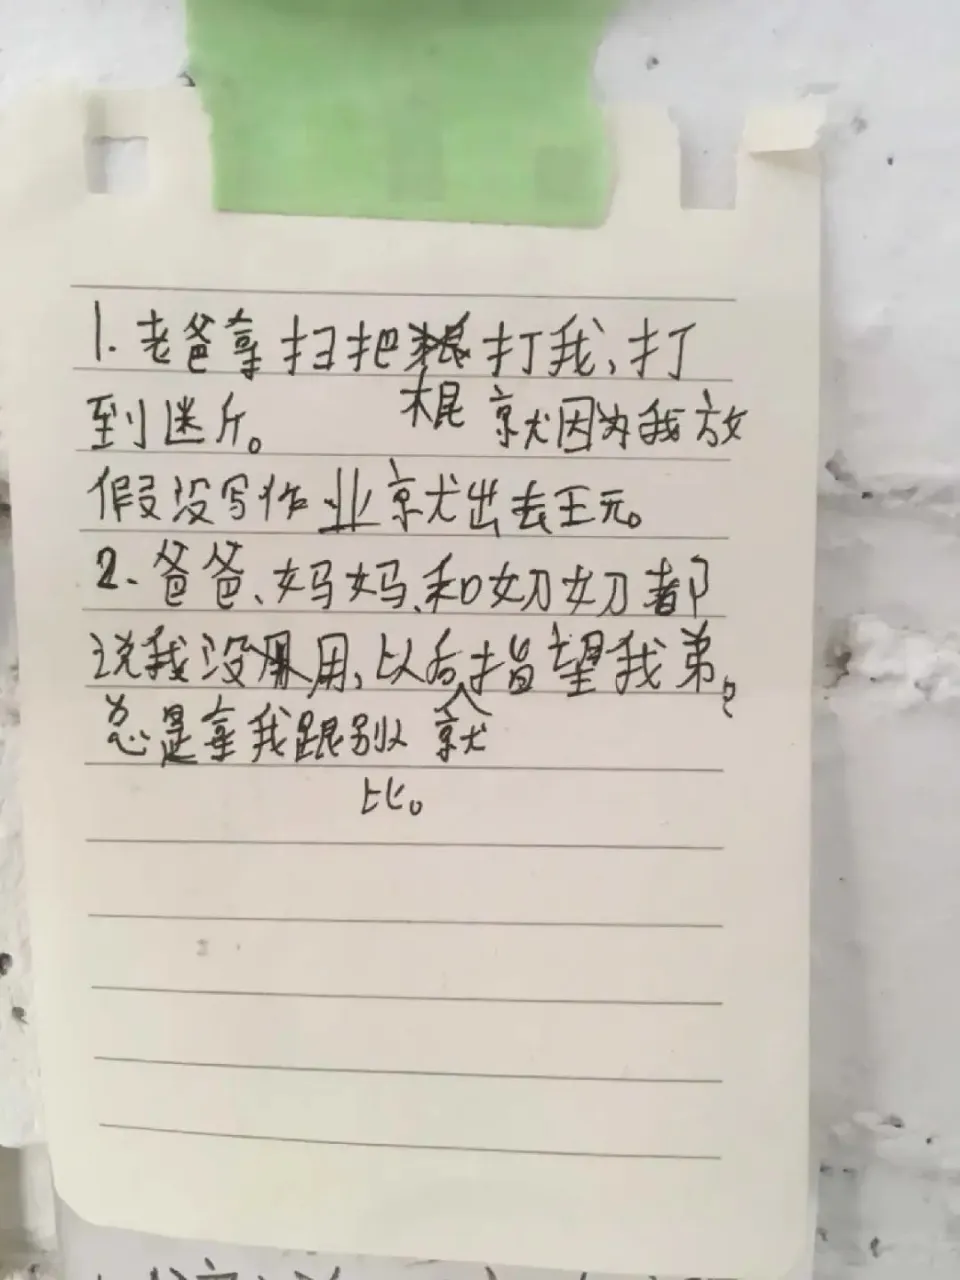 1.老爸拿扫把 打我,打
到迷斤。 棍 就因为我放
假没写作业就出去王元。
2.爸爸、妈妈、和奶奶都
说我没用,以后指望我弟。
总是拿我跟别人 就
比。